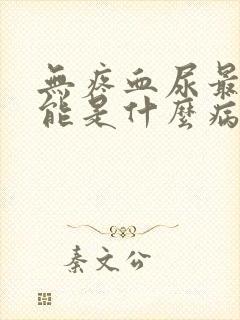 無疼血尿最
能是什麼病
秦文公